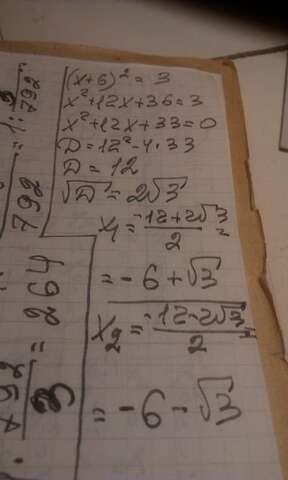 (x+6)² = 3
x²+12x+36=3
x²+12x+33=0
D=12²-4·33
D=12
√D=2√3
x₁=-12+2√3/2=
=-6+√3
x₂=-12-2√3/2=
=-6-√3
792/3=264
792
=1:3/792